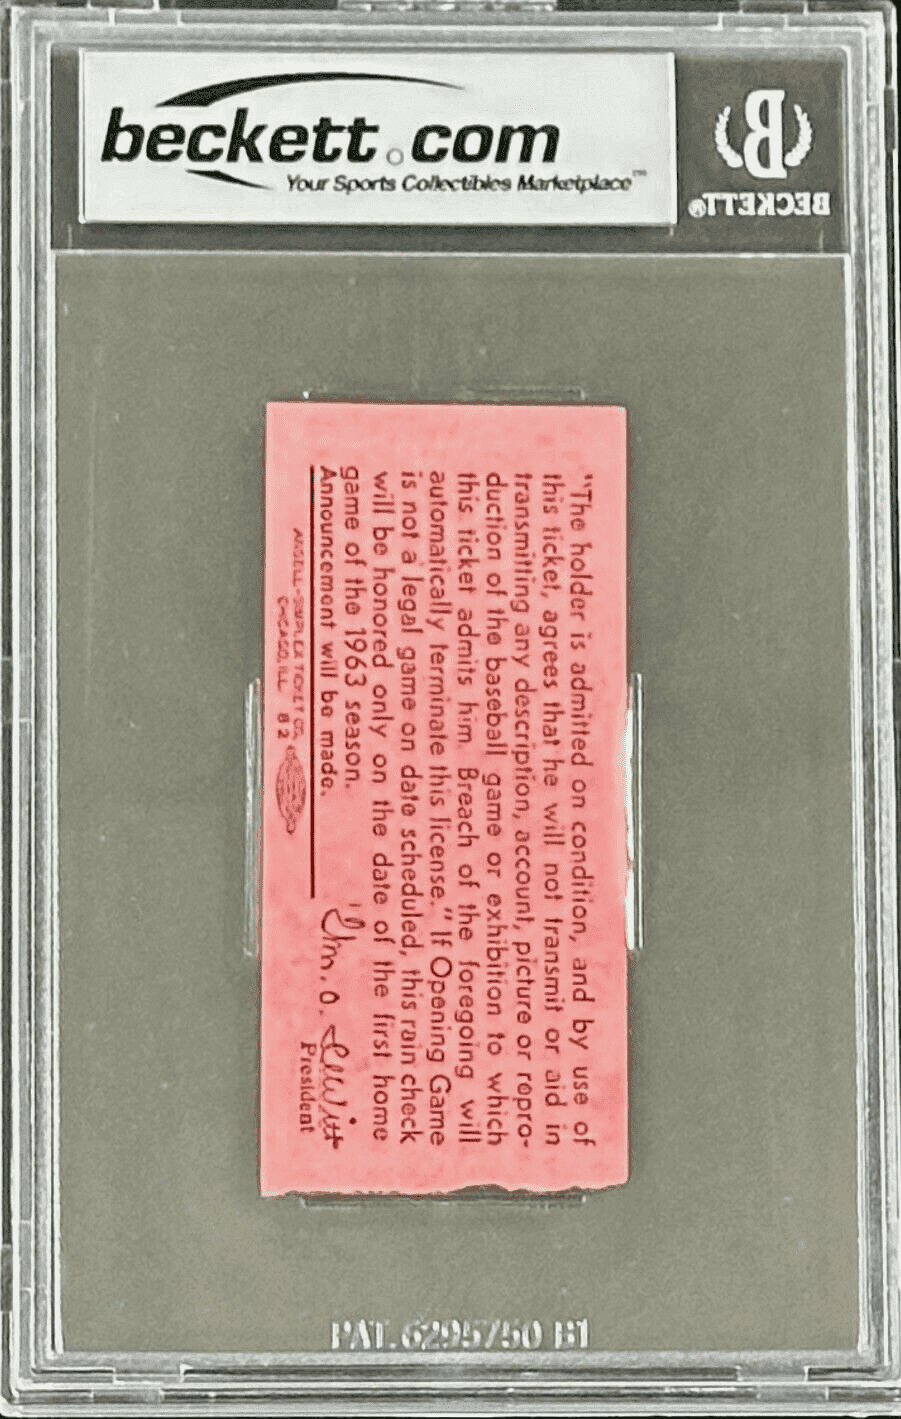 beckett.com
Your Sports Collectibles Marketplace™
BECKETT®
"The holder is admitted on condition, and by use of
this ticket, agrees that he will not transmit or aid in
transmitting any description, account, picture or repro-
duction of the baseball game or exhibition to which
this ticket admits him. Breach of the foregoing will
automatically terminate this license." If Opening Game
is not a legal game on date scheduled, this rain check
will be honored only on the date of the first home
game of the 1963 season.
Announcement will be made.
Wm. O. DeWitt
President
ANSELL-SIMPLEX TICKET CO.
CHICAGO, ILL. 82
PAT. 6295750 B1